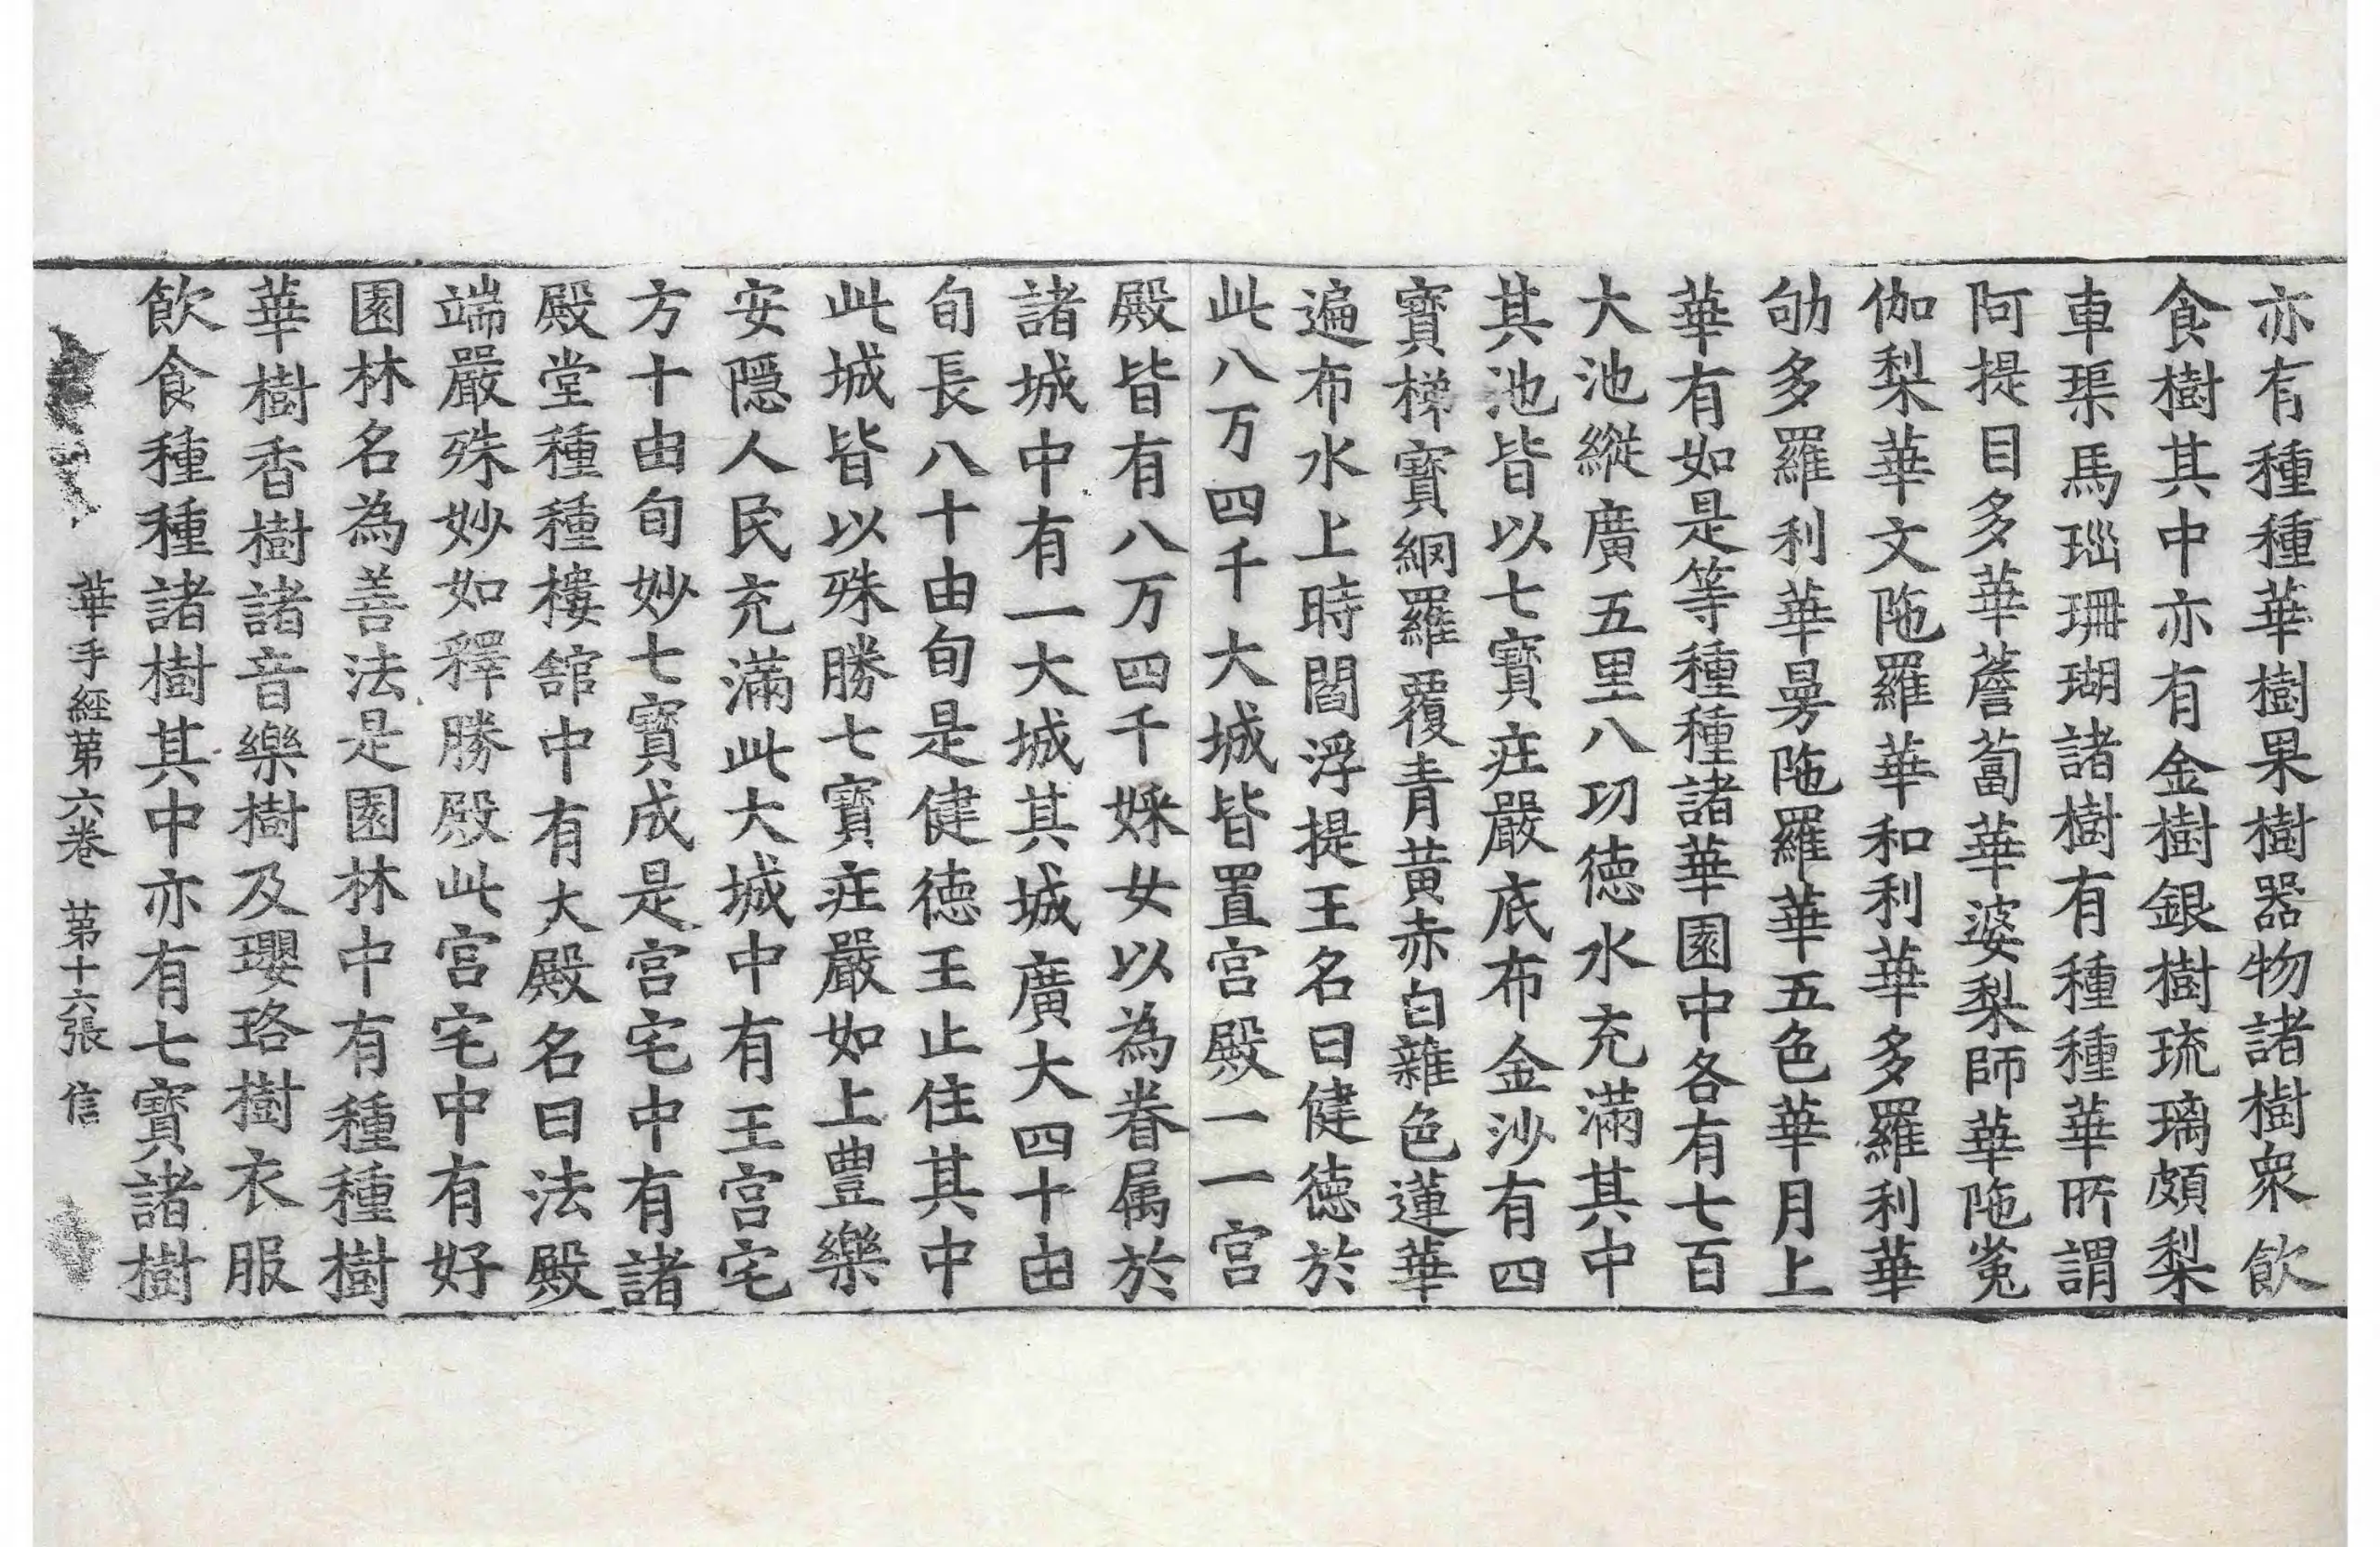 亦有種種華樹果樹器物諸樹衆飲
食樹其中亦有金樹銀樹琉璃頗梨
車璖馬瑙珊瑚諸樹有種種華所謂
阿提目多華薝蔔華婆梨師華陁㝹
伽梨華文陁羅華和利華多羅利華
劬多羅利華曼陁羅華五色華月上
華有如是等種種諸華園中各有七百
大池縱廣五里八功德水充滿其中
其池皆以七寶庄嚴底布金沙有四
寶梯寶網羅覆青黃赤白雜色蓮華
遍布水上時閻浮提王名曰健德於
此八万四千大城皆置宮殿一一宮
殿皆有八万四千婇女以為眷属於
諸城中有一大城其城廣大四十由
旬長八十由旬是健德王止住其中
此城皆以殊勝七寶庄嚴如上豊樂
安隱人民充滿此大城中有王宮宅
方十由旬妙七寶成是宮宅中有諸
殿堂種種樓舘中有大殿名曰法殿
端嚴殊妙如釋勝殿此宮宅中有好
園林名為善法是園林中有種種樹
華樹香樹諸音樂樹及瓔珞樹衣服
飲食種種諸樹其中亦有七寶諸樹
華手經苐六卷 苐十六張 信